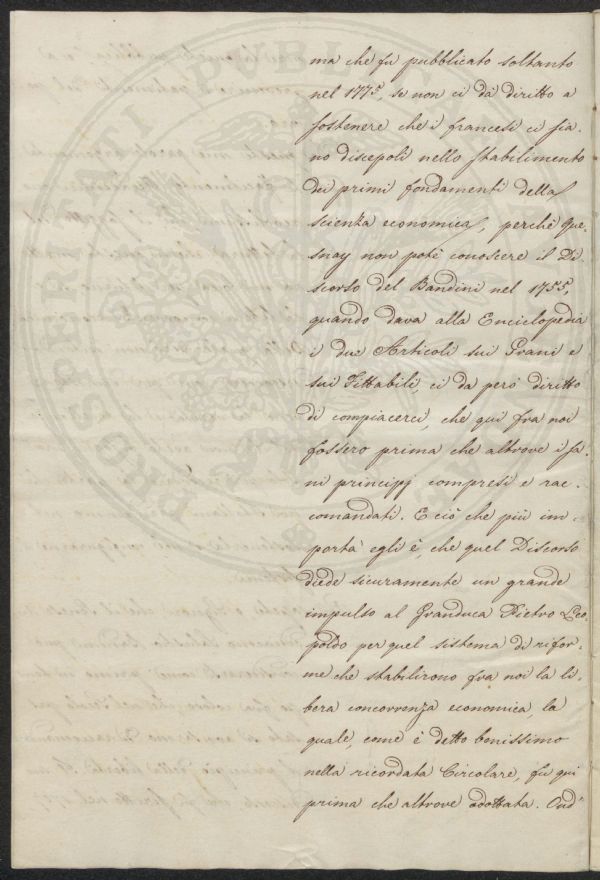 ma che fu pubblicato soltanto
nel 1775, se non ci dà diritto a
sostenere che i francesi ci sia-
no discepoli nello stabilimento
dei primi fondamenti della
scienza economica, perchè Que-
snay non potè conoscere il Di-
scorso del Bandini nel 1755,
quando dava alla Enciclopedia
i due Articoli sui Grani e
sui Fittabili, ci da però diritto
di compiacerci, che qui fra noi
fossero prima che altrove i sa-
ni principj compresi e rac-
comandati. E ciò che più im-
porta egli è, che quel Discorso
diede sicuramente un grande
impulso al Granduca Pietro Leo-
poldo per quel sistema di rifor-
me che stabilirono fra noi la li-
bera concorrenza economica, la
quale, come è detto benissimo
nella ricordata Circolare, fu qui
prima che altrove adottata. Ond'